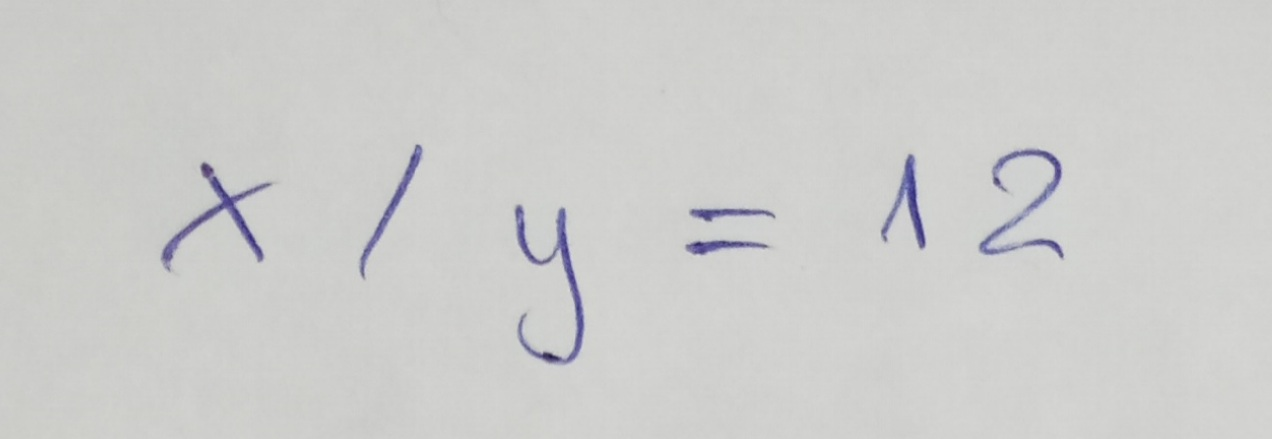 x / y = 12